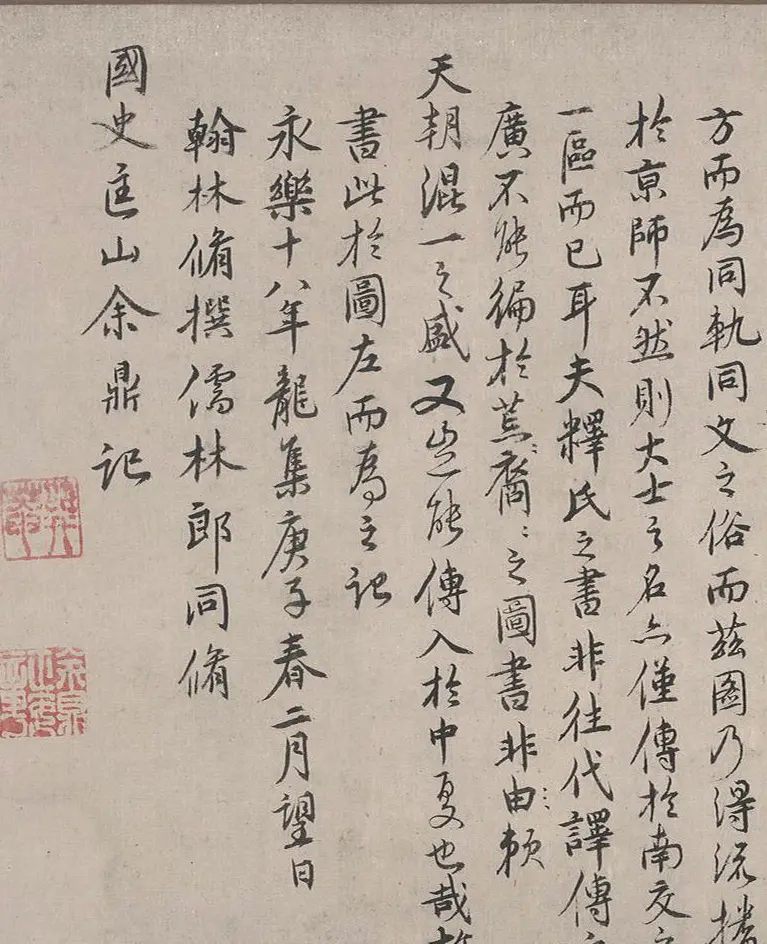 方而為同軌同文之俗而茲圖乃得流播
於京師不然則大士之名亦僅傳於南交
一區而已耳夫釋氏之書非往代譯傳
廣不能徧於荒裔之圖書非由賴
天朝混一之盛又豈能傳入於中夏也哉
書此於圖左而為之記
永樂十八年龍集庚子春二月望日
翰林脩撰儒林郎同脩
國史匡山余鼎記